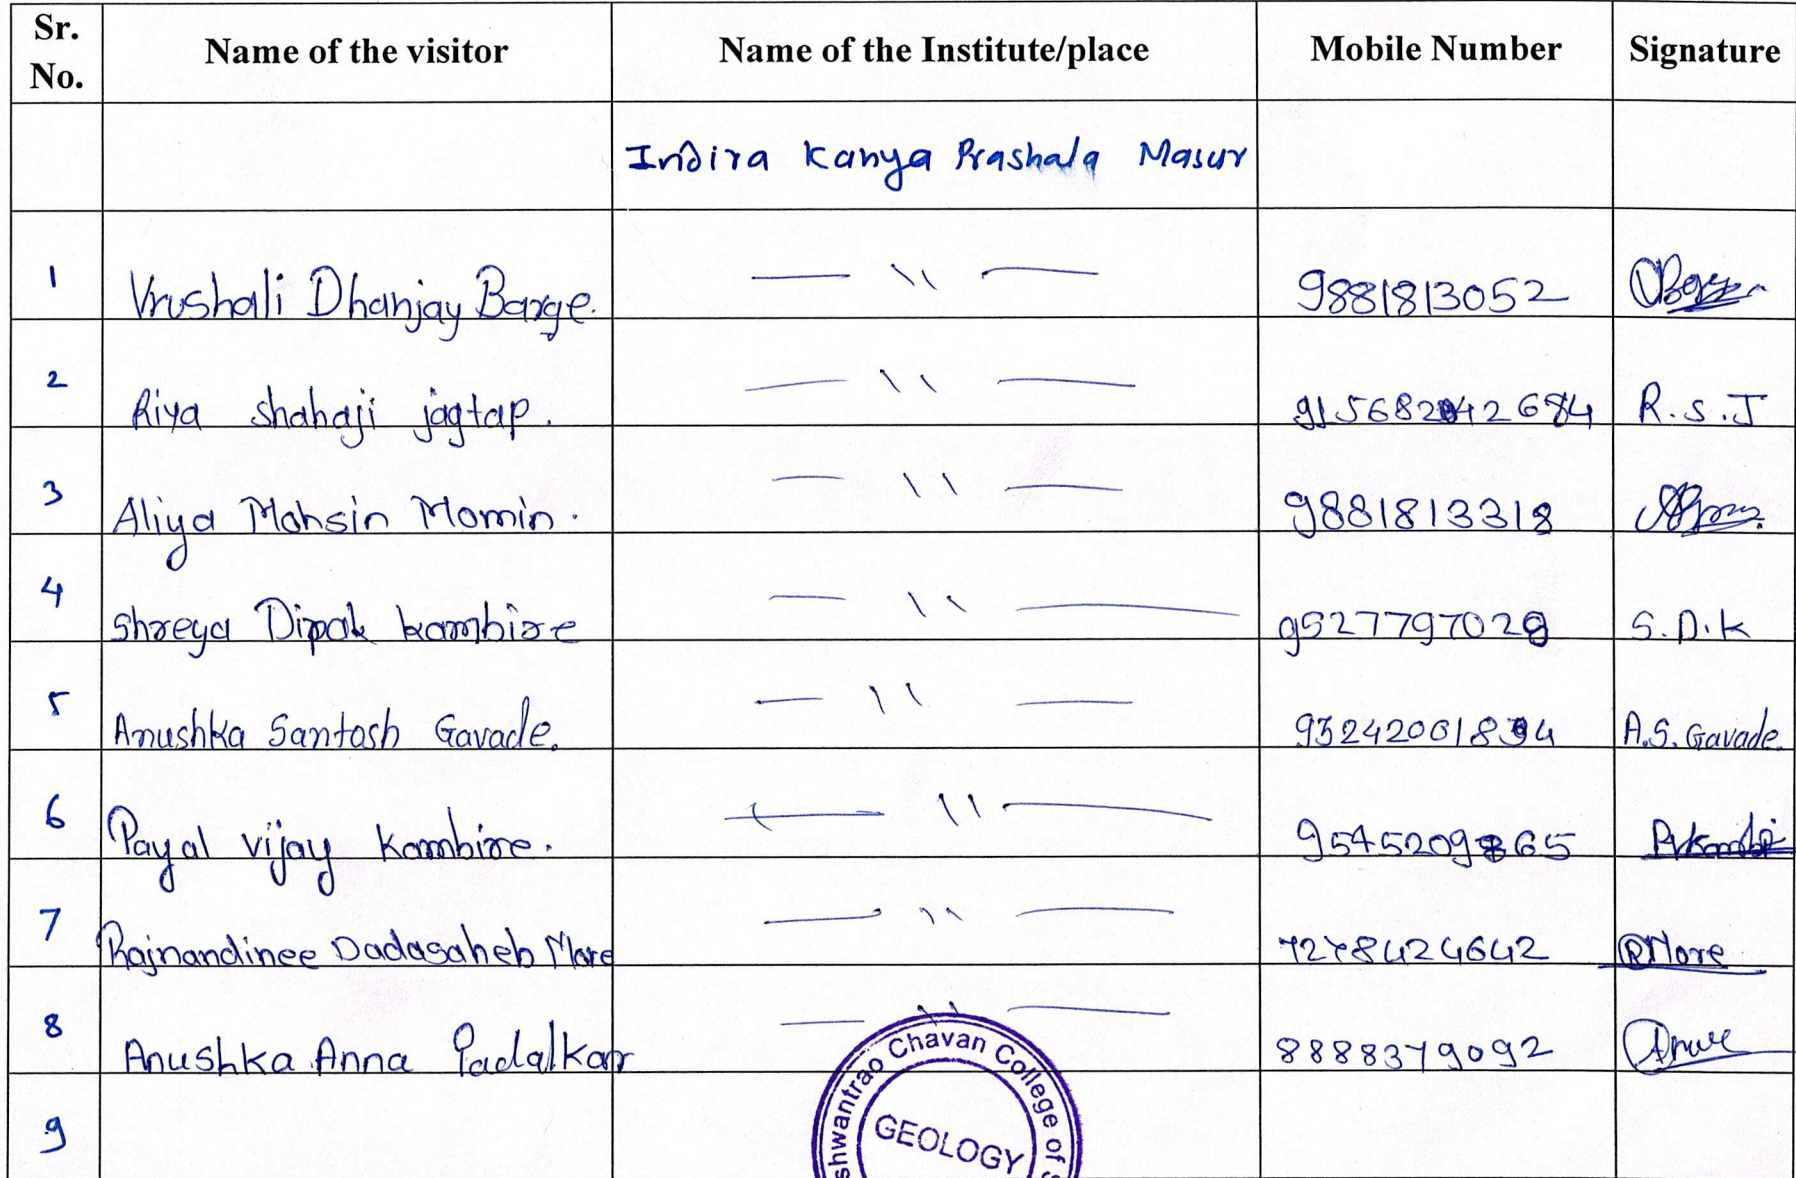 Sr. No. Name of the visitor Name of the Institute/place Mobile Number Signature
Indira Kanya Prashala Masur
1 Vrushali Dhanjay Barge. — 11 — 9881813052
2 Riya shahaji jagtap. — 11 — R.S.J
3 Aliya Mohsin Momin. — 11 — 9881813318
4 Shreya Dipak kambire — 11 — 9527797028 S.D.K
5 Anushka Santosh Gavade. — 11 — A.S. Gavade.
6 Payal vijay Kambire. — 11 —
7 Rajnandinee Dadasaheb More — 11 — RMore
8 Anushka Anna Padalkar — 11 — 8888379092
9
shwantrao Chavan College of
GEOLOGY